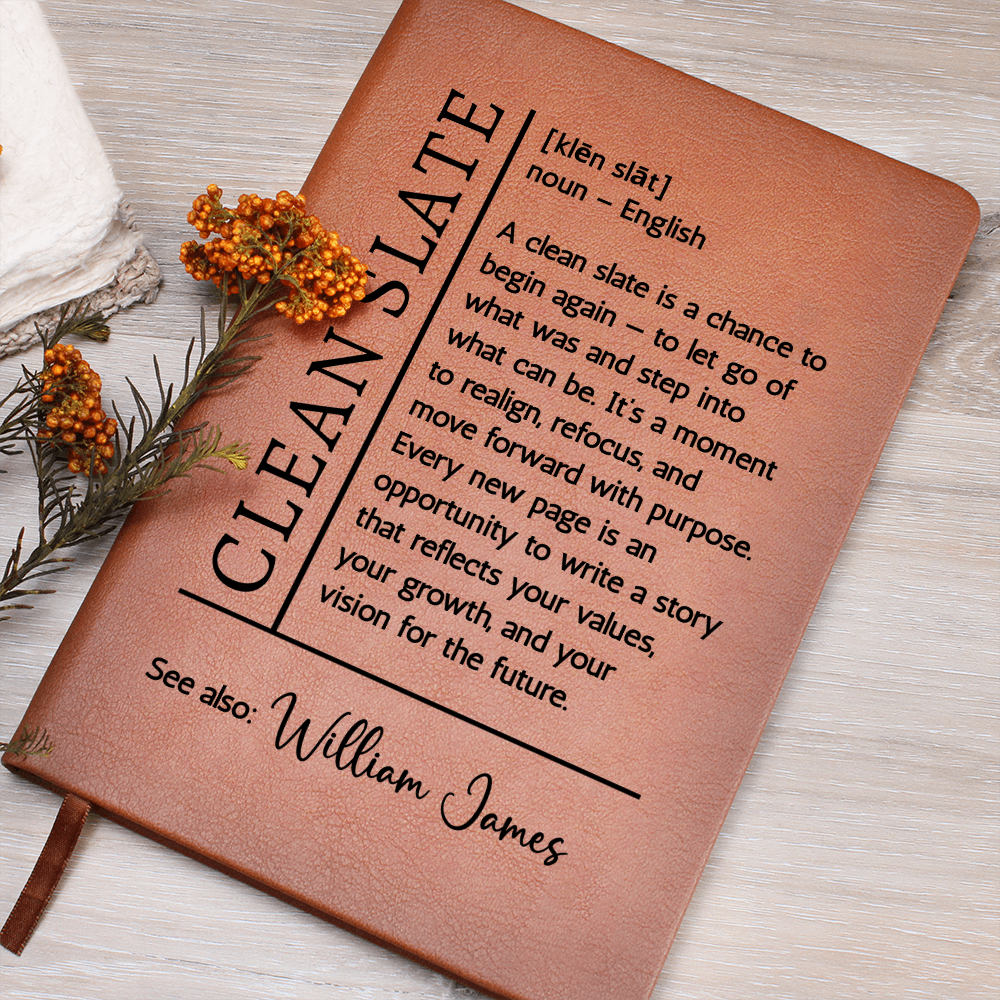 CLEAN SLATE
[klēn slāt]
noun – English
A clean slate is a chance to
begin again – to let go of
what was and step into
what can be. It's a moment
to realign, refocus, and
move forward with purpose.
Every new page is an
opportunity to write a story
that reflects your values,
your growth, and your
vision for the future.
See also: William James